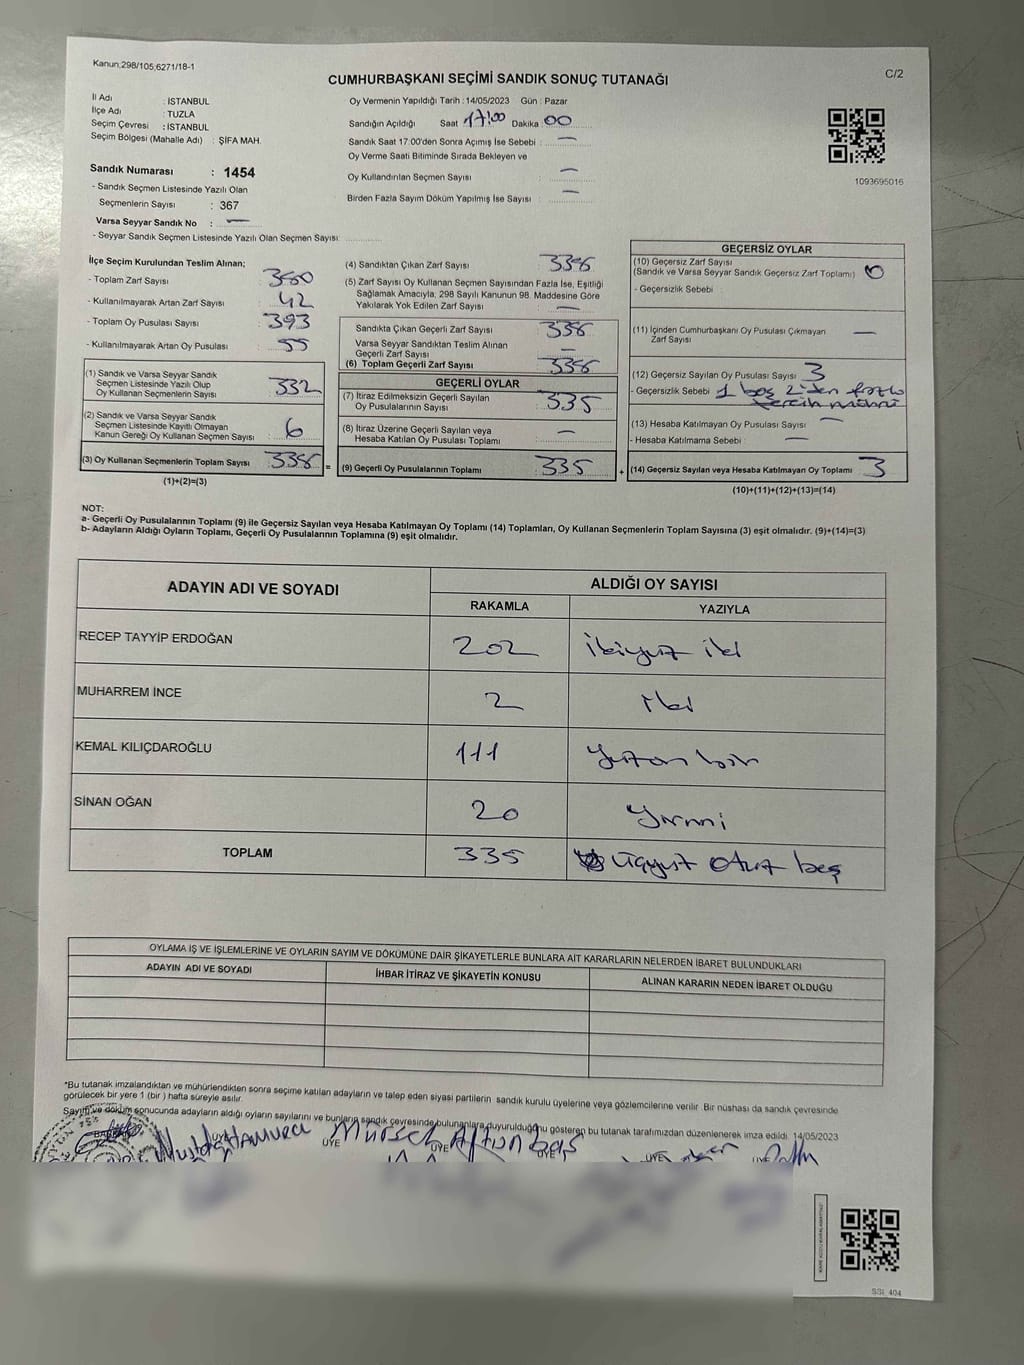 Kanun,298/105;6271/18-1
C/2
CUMHURBAŞKANI SEÇİMİ SANDIK SONUÇ TUTANAĞI
İl Adı : İSTANBUL
İlçe Adı : TUZLA
Seçim Çevresi : İSTANBUL
Seçim Bölgesi (Mahalle Adı) : ŞİFA MAH.
Sandık Numarası : 1454
- Sandık Seçmen Listesinde Yazılı Olan
Seçmenlerin Sayısı : 367
Varsa Seyyar Sandık No : —
- Seyyar Sandık Seçmen Listesinde Yazılı Olan Seçmen Sayısı:
Oy Vermenin Yapıldığı Tarih : 14/05/2023 Gün : Pazar
Sandığın Açıldığı Saat 17:00 Dakika : 00
Sandık Saat 17:00'den Sonra Açımış İse Sebebi : —
Oy Verme Saati Bitiminde Sırada Bekleyen ve
Oy Kullandırılan Seçmen Sayısı : —
Birden Fazla Sayım Döküm Yapılmış İse Sayısı : —
1093695016
İlçe Seçim Kurulundan Teslim Alınan;
- Toplam Zarf Sayısı : 380
- Kullanılmayarak Artan Zarf Sayısı : 42
- Toplam Oy Pusulası Sayısı : 393
- Kullanılmayarak Artan Oy Pusulası : 55
(1) Sandık ve Varsa Seyyar Sandık
Seçmen Listesinde Yazılı Olup
Oy Kullanan Seçmenlerin Sayısı : 332
(2) Sandık ve Varsa Seyyar Sandık
Seçmen Listesinde Kayıtlı Olmayan
Kanun Gereği Oy Kullanan Seçmen Sayısı : 6
(3) Oy Kullanan Seçmenlerin Toplam Sayısı : 338
(1)+(2)=(3)
(4) Sandıktan Çıkan Zarf Sayısı : 338
(5) Zarf Sayısı Oy Kullanan Seçmen Sayısından Fazla İse, Eşitliği
Sağlamak Amacıyla, 298 Sayılı Kanunun 98. Maddesine Göre
Yakılarak Yok Edilen Zarf Sayısı : —
Sandıkta Çıkan Geçerli Zarf Sayısı : 338
Varsa Seyyar Sandıktan Teslim Alınan
Geçerli Zarf Sayısı : —
(6) Toplam Geçerli Zarf Sayısı : 338
GEÇERLİ OYLAR
(7) İtiraz Edilmeksizin Geçerli Sayılan
Oy Pusulasının Sayısı : 335
(8) İtiraz Üzerine Geçerli Sayılan veya
Hesaba Katılan Oy Pusulası Toplamı : —
(9) Geçerli Oy Pusulalarının Toplamı : 335
GEÇERSİZ OYLAR
(10) Geçersiz Zarf Sayısı
(Sandık ve Varsa Seyyar Sandık Geçersiz Zarf Toplamı) : 0
- Geçersizlik Sebebi :
(11) İçinden Cumhurbaşkanı Oy Pusulası Çıkmayan
Zarf Sayısı : —
(12) Geçersiz Sayılan Oy Pusulası Sayısı : 3
- Geçersizlik Sebebi : 1 boş 2'den fazla
tercih mührü
(13) Hesaba Katılmayan Oy Pusulası Sayısı : —
- Hesaba Katılmama Sebebi : —
(14) Geçersiz Sayılan veya Hesaba Katılmayan Oy Toplamı : 3
(10)+(11)+(12)+(13)=(14)
NOT:
a- Geçerli Oy Pusulalarının Toplamı (9) ile Geçersiz Sayılan veya Hesaba Katılmayan Oy Toplamı (14) Toplamları, Oy Kullanan Seçmenlerin Toplam Sayısına (3) eşit olmalıdır. (9)+(14)=(3)
b- Adayların Aldığı Oyların Toplamı, Geçerli Oy Pusulalarının Toplamına (9) eşit olmalıdır.
ADAYIN ADI VE SOYADI ALDIĞI OY SAYISI
RAKAMLA YAZIYLA
RECEP TAYYİP ERDOĞAN 202 ikiyüz iki
MUHARREM İNCE 2 iki
KEMAL KILIÇDAROĞLU 111 Yüzonbir
SİNAN OĞAN 20 Yirmi
TOPLAM 335 üçyüz otuz beş
OYLAMA İŞ VE İŞLEMLERİNE VE OYLARIN SAYIM VE DÖKÜMÜNE DAİR ŞİKAYETLERLE BUNLARA AİT KARARLARIN NELERDEN İBARET BULUNDUKLARI
ADAYIN ADI VE SOYADI İHBAR İTİRAZ VE ŞİKAYETİN KONUSU ALINAN KARARIN NEDEN İBARET OLDUĞU
*Bu tutanak imzalandıktan ve mühürlendikten sonra seçime katılan adayların ve talep eden siyasi partilerin sandık kurulu üyelerine veya gözlemcilerine verilir. Bir nüshası da sandık çevresinde
görülecek bir yere 1 (bir ) hafta süreyle asılır.
Sayım ve döküm sonucunda adayların aldığı oyların sayılarını ve bunların sandık çevresinde bulunanlara duyurulduğunu gösteren bu tutanak tarafımızdan düzenlenerek imza edildi. 14/05/2023
BAŞKAN ÜYE ÜYE ÜYE ÜYE ÜYE ÜYE
SSI_404